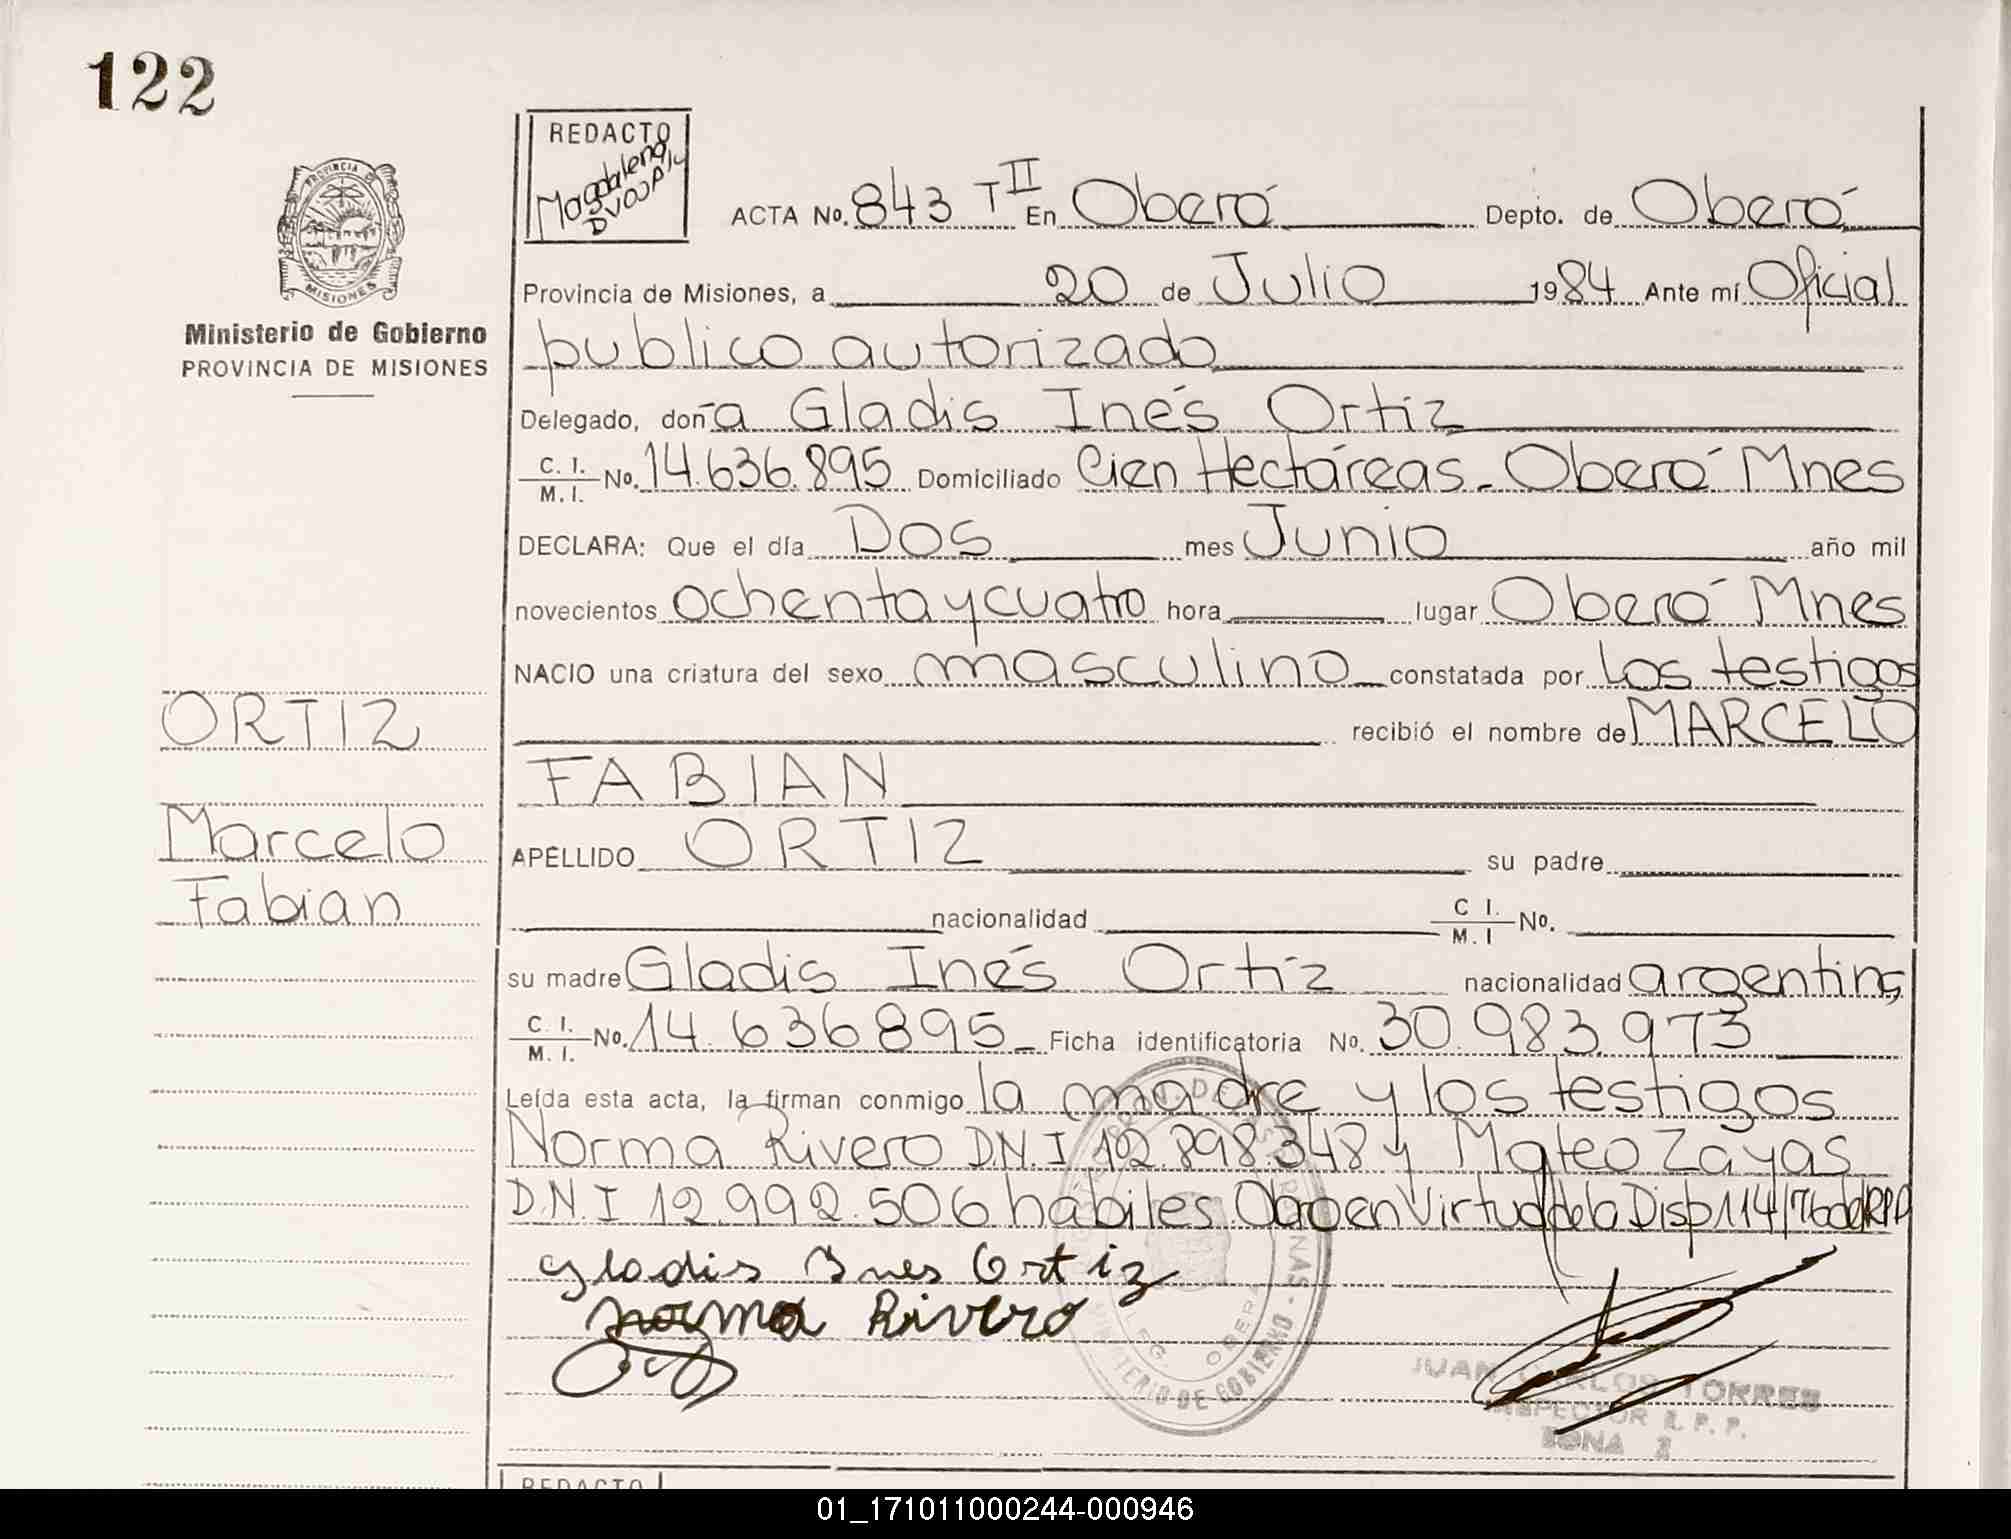 122
REDACTO
Magdalena
DVOJAK
PROVINCIA DE
MISIONES
Ministerio de Gobierno
PROVINCIA DE MISIONES
ACTA No. 843 T II En Oberá Depto. de Oberá
Provincia de Misiones, a 20 de Julio 1984 Ante mí Oficial
publico autorizado
Delegado, don a Gladis Inés Ortiz
C. I. M. I. No. 14.636.895 Domiciliado Cien Hectáreas - Oberá Mnes
DECLARA: Que el día Dos mes Junio año mil
novecientos ochenta y cuatro hora lugar Oberá Mnes
NACIO una criatura del sexo masculino constatada por los testigos
recibió el nombre de MARCELO
FABIAN
APELLIDO ORTIZ su padre
nacionalidad C I. M. I No.
su madre Gladis Inés Ortíz nacionalidad argentina
C. I. M. I. No. 14.636895 Ficha identificatoria No. 30.983.973
Leída esta acta, la firman conmigo la madre y los testigos
Norma Rivero D.N.I 12.898.348 y Mateo Zayas
D.N.I 12.992.506 habiles. Obro en Virtud de la Disp 114/76 del RPP
ORTIZ
Marcelo
Fabian
Gladis Ines Ortiz
norma Rivero
JUAN CARLOS TORRES
INSPECTOR R. P. P.
ZONA
MINISTERIO DE GOBIERNO
OBERA
REDACTO
01_171011000244-000946